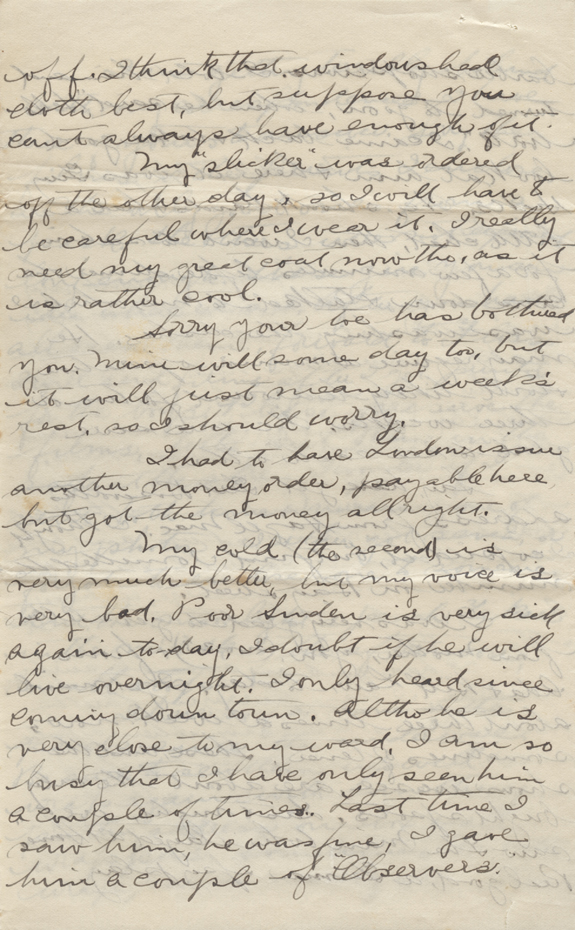 off. I think that windows had
cloth best, but suppose you
cant always have enough of it.
My "slicker" was ordered
off the other day, so I will have to
be careful where I wear it. I really
need my great coat now tho, as it
is rather cool.
Sorry your toe has bothered
you. Mine will some day too, but
it will just mean a week's
rest, so I should worry.
I had to have London issue
another money order, payable here
but got the money all right.
My cold (the second) is
very much better, but my voice is
very bad. Poor Suden is very sick
again to-day, I doubt if he will
live overnight. I only heard since
coming down town. Altho he is
very close to my ward, I am so
busy that I have only seen him
a couple of times. Last time I
saw him, he was fine, I gave
him a couple of "Observers."